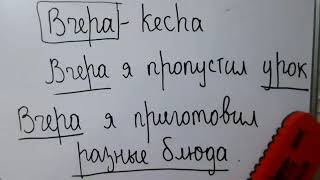 Вчера - kecha
Вчера я пропустил урок
Вчера я приготовил
разные блюда.